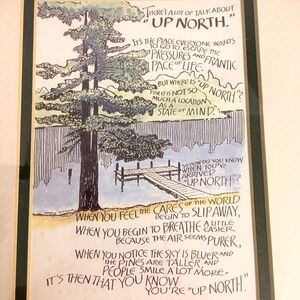 THERE'S A LOT OF TALK ABOUT
"UP NORTH."
IT'S THE PLACE EVERYONE WANTS
TO GO TO ESCAPE THE
PRESSURES AND FRANTIC
PACE OF LIFE.
BUT WHERE IS "UP NORTH"?
FOR IT IS NOT SO
MUCH A LOCATION
AS A
STATE OF MIND.
HOW DO YOU KNOW
WHEN YOU'VE
ARRIVED
"UP NORTH"?
WHEN YOU FEEL THE CARES OF THE WORLD
BEGIN TO SLIP AWAY,
WHEN YOU BEGIN TO BREATHE A LITTLE
EASIER
BECAUSE THE AIR SEEMS PURER,
WHEN YOU NOTICE THE SKY IS BLUER AND
THE PINES ARE TALLER AND
PEOPLE SMILE A LOT MORE,
IT'S THEN THAT YOU KNOW
YOU'RE "UP NORTH."